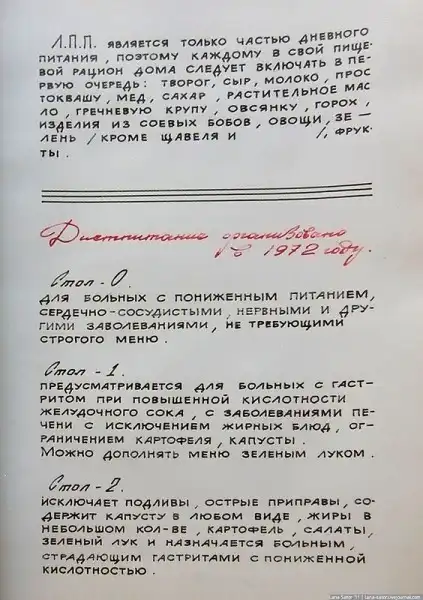 Л.П.П. ЯВЛЯЕТСЯ ТОЛЬКО ЧАСТЬЮ ДНЕВНОГО
ПИТАНИЯ, ПОЭТОМУ КАЖДОМУ В СВОЙ ПИЩЕ-
ВОЙ РАЦИОН ДОМА СЛЕДУЕТ ВКЛЮЧАТЬ В ПЕ-
РВУЮ ОЧЕРЕДЬ: ТВОРОГ, СЫР, МОЛОКО, ПРОС
ТОКВАШУ, МЕД, САХАР, РАСТИТЕЛЬНОЕ МАС
ЛО, ГРЕЧНЕВУЮ КРУПУ, ОВСЯНКУ, ГОРОХ,
ИЗДЕЛИЯ ИЗ СОЕВЫХ БОБОВ, ОВОЩИ, ЗЕ-
ЛЕНЬ /КРОМЕ ЩАВЕЛЯ И /, ФРУК-
ТЫ.
Диетпитание организовано
в 1972 году.
Стол - 0.
ДЛЯ БОЛЬНЫХ С ПОНИЖЕННЫМ ПИТАНИЕМ,
СЕРДЕЧНО-СОСУДИСТЫМИ, НЕРВНЫМИ И ДРУ-
ГИМИ ЗАБОЛЕВАНИЯМИ, НЕ ТРЕБУЮЩИМИ
СТРОГОГО МЕНЮ.
Стол - 1.
ПРЕДУСМАТРИВАЕТСЯ ДЛЯ БОЛЬНЫХ С ГАСТ-
РИТОМ ПРИ ПОВЫШЕННОЙ КИСЛОТНОСТИ
ЖЕЛУДОЧНОГО СОКА, С ЗАБОЛЕВАНИЯМИ ПЕ-
ЧЕНИ С ИСКЛЮЧЕНИЕМ ЖИРНЫХ БЛЮД, ОГ-
РАНИЧЕНИЕМ КАРТОФЕЛЯ, КАПУСТЫ.
МОЖНО ДОПОЛНЯТЬ МЕНЮ ЗЕЛЕНЫМ ЛУКОМ.
Стол - 2.
ИСКЛЮЧАЕТ ПОДЛИВЫ, ОСТРЫЕ ПРИПРАВЫ, СО-
ДЕРЖИТ КАПУСТУ В ЛЮБОМ ВИДЕ, ЖИРЫ В
НЕБОЛЬШОМ КОЛ-ВЕ, КАРТОФЕЛЬ, САЛАТЫ,
ЗЕЛЕНЫЙ ЛУК И НАЗНАЧАЕТСЯ БОЛЬНЫМ,
СТРАДАЮЩИМ ГАСТРИТАМИ С ПОНИЖЕННОЙ
КИСЛОТНОСТЬЮ.